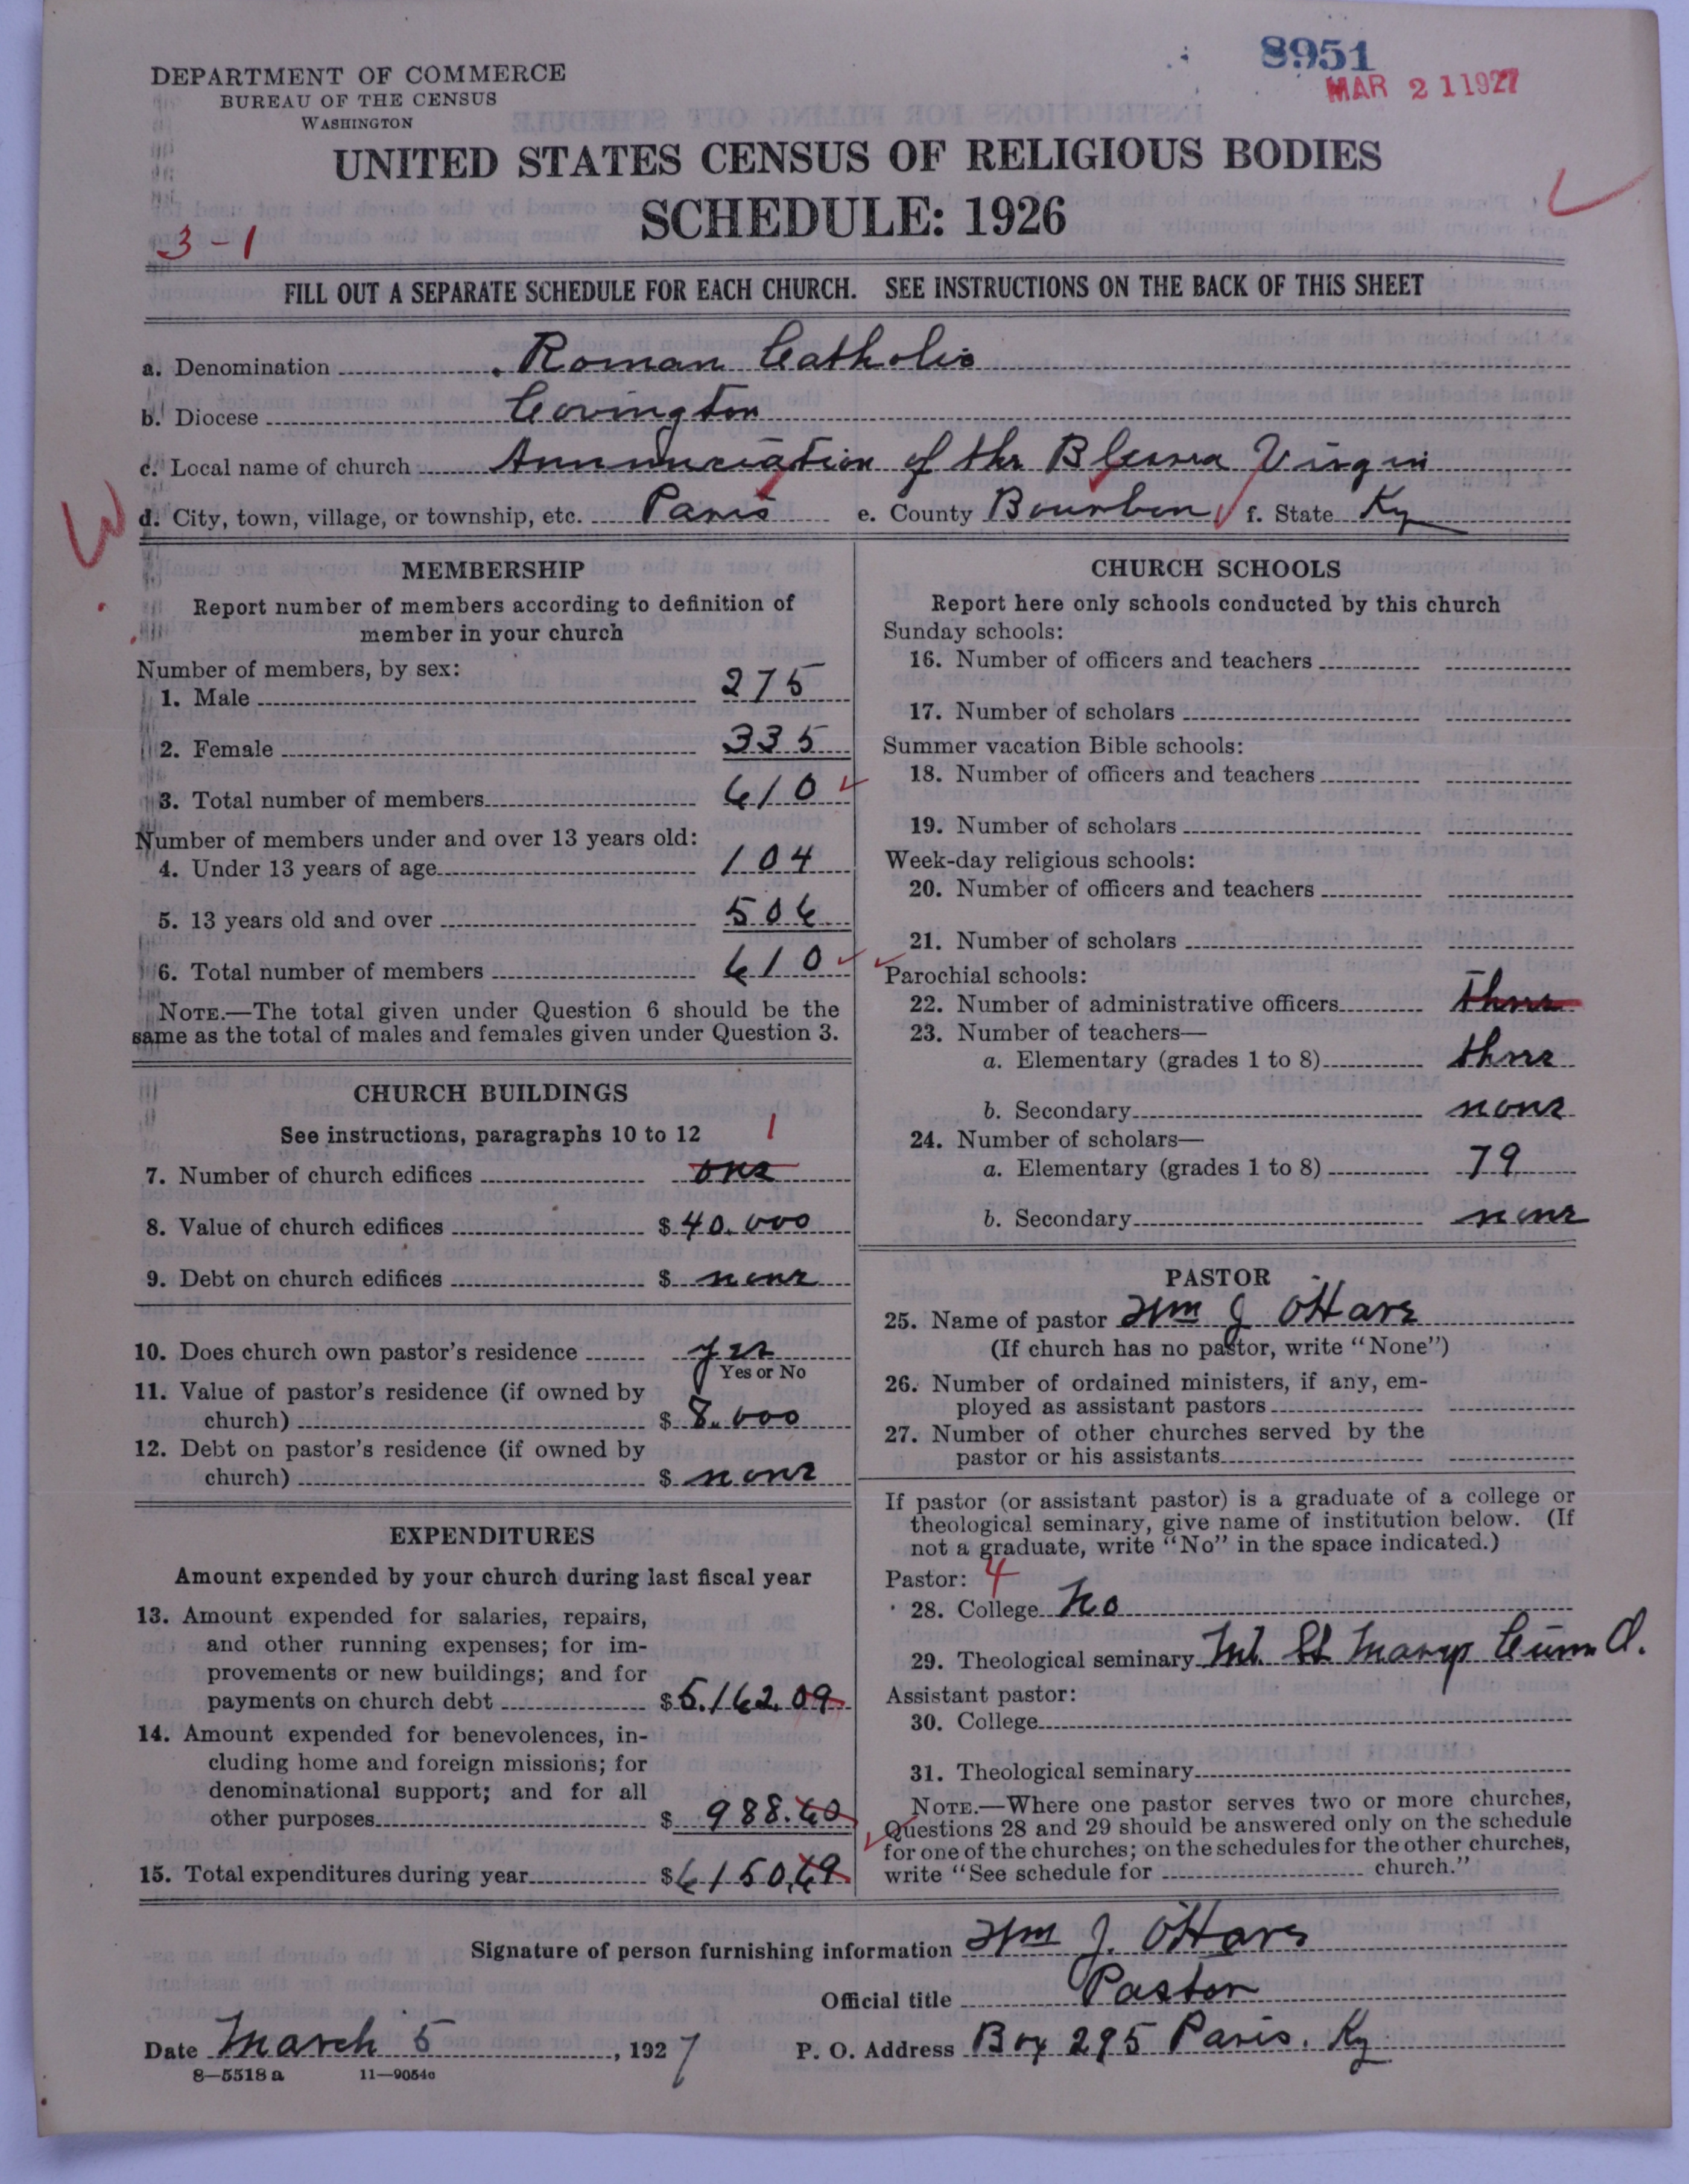 8951
MAR 21 1927
DEPARTMENT OF COMMERCE
BUREAU OF THE CENSUS
WASHINGTON
UNITED STATES CENSUS OF RELIGIOUS BODIES
SCHEDULE: 1926
3-1
FILL OUT A SEPARATE SCHEDULE FOR EACH CHURCH. SEE INSTRUCTIONS ON THE BACK OF THIS SHEET
a. Denomination Roman Catholic
b. Diocese Covington
c. Local name of church Annunciation of the Blessed Virgin
d. City, town, village, or township, etc. Paris e. County Bourbon f. State Ky
MEMBERSHIP
Report number of members according to definition of
member in your church
Number of members, by sex:
1. Male 275
2. Female 335
3. Total number of members 610
Number of members under and over 13 years old:
4. Under 13 years of age 104
5. 13 years old and over 506
6. Total number of members 610
NOTE.—The total given under Question 6 should be the
same as the total of males and females given under Question 3.
CHURCH BUILDINGS
See instructions, paragraphs 10 to 12
1
7. Number of church edifices one
8. Value of church edifices $ 40.000
9. Debt on church edifices $ none
10. Does church own pastor's residence yes
Yes or No
11. Value of pastor's residence (if owned by
church) $ 8.000
12. Debt on pastor's residence (if owned by
church) $ none
EXPENDITURES
Amount expended by your church during last fiscal year
13. Amount expended for salaries, repairs,
and other running expenses; for im-
provements or new buildings; and for
payments on church debt $ 5.162.09
14. Amount expended for benevolences, in-
cluding home and foreign missions; for
denominational support; and for all
other purposes $ 988.60
15. Total expenditures during year $ 6150.69
CHURCH SCHOOLS
Report here only schools conducted by this church
Sunday schools:
16. Number of officers and teachers
17. Number of scholars
Summer vacation Bible schools:
18. Number of officers and teachers
19. Number of scholars
Week-day religious schools:
20. Number of officers and teachers
21. Number of scholars
Parochial schools:
22. Number of administrative officers three
23. Number of teachers—
a. Elementary (grades 1 to 8) three
b. Secondary none
24. Number of scholars—
a. Elementary (grades 1 to 8) 79
b. Secondary none
PASTOR
25. Name of pastor Wm J O'Hare
(If church has no pastor, write "None")
26. Number of ordained ministers, if any, em-
ployed as assistant pastors
27. Number of other churches served by the
pastor or his assistants
If pastor (or assistant pastor) is a graduate of a college or
theological seminary, give name of institution below. (If
not a graduate, write "No" in the space indicated.)
Pastor: 4
28. College No
29. Theological seminary Mt. St Marys O.
Assistant pastor:
30. College
31. Theological seminary
NOTE.—Where one pastor serves two or more churches,
Questions 28 and 29 should be answered only on the schedule
for one of the churches; on the schedules for the other churches,
write "See schedule for church."
Signature of person furnishing information Wm J. O'Hare
Official title Pastor
Date March 5, 1927 P. O. Address Box 295 Paris. Ky
8—5518 a 11—9054c